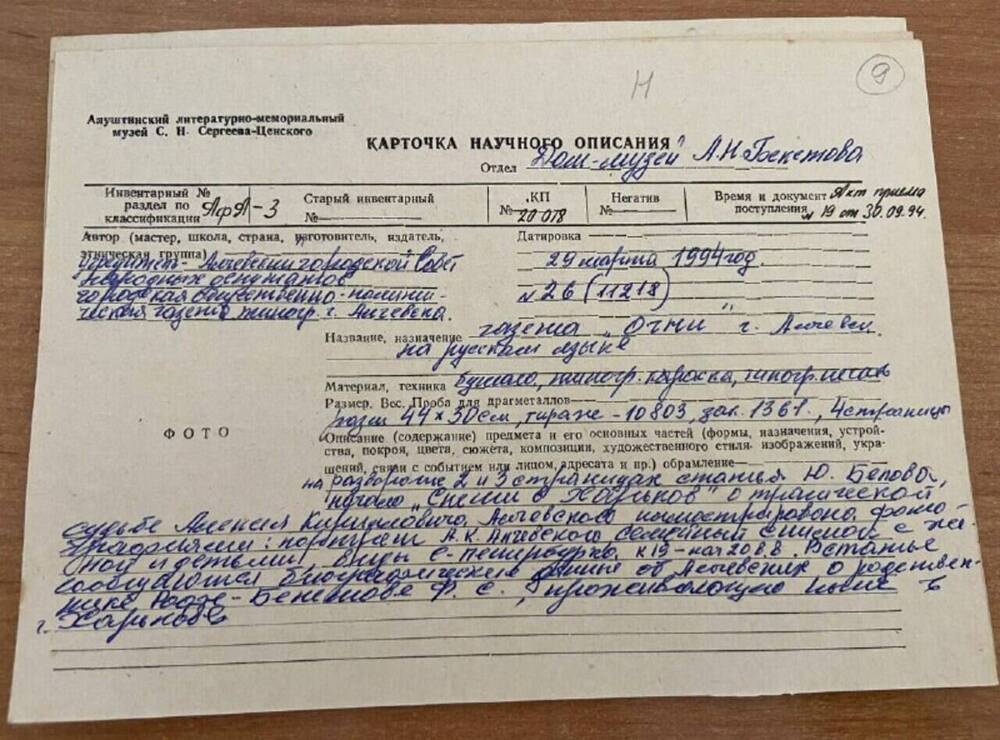 Н
9
Алуштинский литературно-мемориальный
музей С. Н. Сергеева-Ценского
КАРТОЧКА НАУЧНОГО ОПИСАНИЯ
Отдел Дом-музей А.Н Бекетова
Инвентарный №
раздел по
классификации АфЛ-3
Старый инвентарный
№
КП
№ 20 078
Негатив
№
Время и документ Акт приема
поступления № 19 от 30.09.94.
Автор (мастер, школа, страна, изготовитель, издатель,
этническая группа)
учредитель - Алчевский городской Совет
народных депутатов
городская общественно-полити-
ческая газета типогр. г. Алчевска.
Датировка
29 марта 1994 год.
№ 26 (11218)
Название, назначение газета „Огни" г. Алчевск
на русском языке
Материал, техника бумага, типогр. краска, типогр. печать
Размер. Вес. Проба для драгметаллов
разм 44х30см, тираж - 10803, зак. 1361, 4 страницы
ФОТО
Описание (содержание) предмета и его основных частей (формы, назначения, устрой-
ства, покроя, цвета, сюжета, композиции, художественного стиля изображений, укра-
шений, связи с событием или лицом, адресата и пр.) обрамление
на развороте 2 и 3 страницах статья Ю. Белова,
начало в Харьков" о трагической
судьбе Алексея Кирилловича Алчевского иллюстрирована фото-
графиями: портрет А.К. Алчевского, семейный снимок с же-
ной и детьми, виды С-Петербурга к 19-нач 20 в.в. В статье
сообщаются биографические данные об Алчевских о родствен-
нике Ф. С., проживающую ныне в
г. Харькове